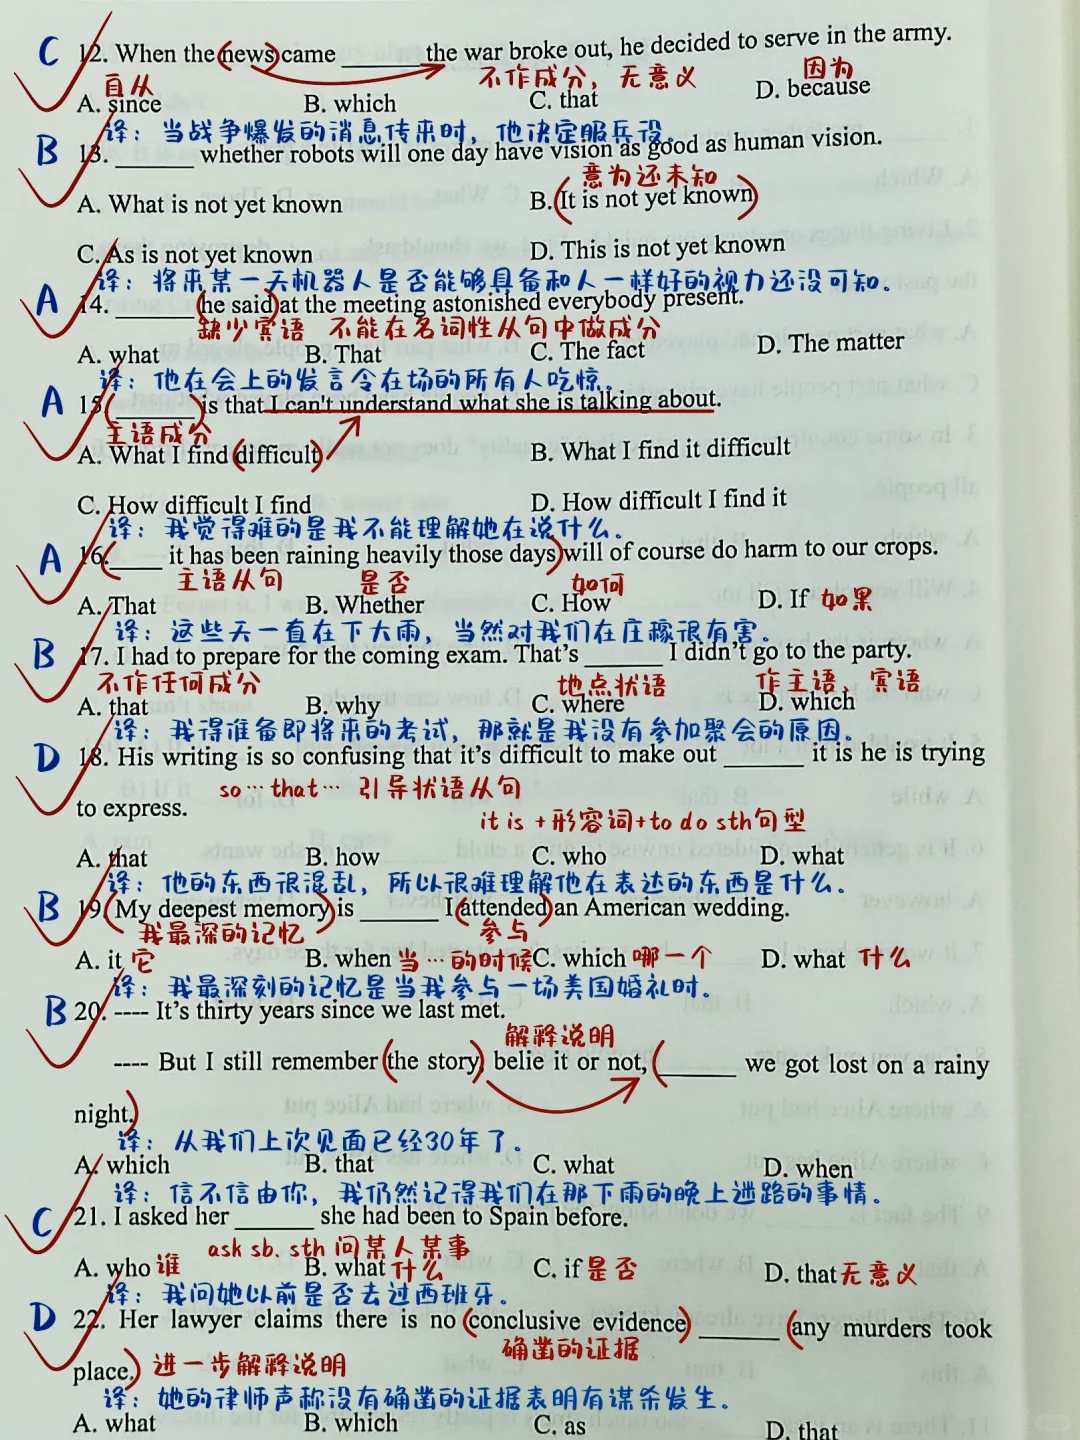 C 12. When the (news) came ______ the war broke out, he decided to serve in the army.
自从 不作成分，无意义 因为
A. since B. which C. that D. because
译：当战争爆发的消息传来时，他决定服兵役。
B 13. ______ whether robots will one day have vision as good as human vision.
意为还未知
A. What is not yet known B. (It is not yet known)
C. As is not yet known D. This is not yet known
译：将来某一天机器人是否能够具备和人一样好的视力还没可知。
A 14. ______ (he said) at the meeting astonished everybody present.
缺少宾语 不能在名词性从句中做成分
A. what B. That C. The fact D. The matter
译：他在会上的发言令在场的所有人吃惊。
A 15. (______) is that I can't understand what she is talking about.
主语成分
A. What I find (difficult) B. What I find it difficult
C. How difficult I find D. How difficult I find it
译：我觉得难的是我不能理解她在说什么。
A 16. (____ it has been raining heavily those days) will of course do harm to our crops.
主语从句 是否 如何
A. That B. Whether C. How D. If 如果
译：这些天一直在下大雨，当然对我们在庄稼很有害。
B 17. I had to prepare for the coming exam. That's ______ I didn't go to the party.
不作任何成分 地点状语 作主语 宾语
A. that B. why C. where D. which
译：我得准备即将来的考试，那就是我没有参加聚会的原因。
D 18. His writing is so confusing that it's difficult to make out ______ it is he is trying
so…that… 引导状语从句
to express.
it is +形容词+to do sth句型
A. that B. how C. who D. what
译：他的东西很混乱，所以很难理解他在表达的东西是什么。
B 19. (My deepest memory) is ______ I (attended) an American wedding.
我最深的记忆 参与
A. it 它 B. when 当…的时候 C. which 哪一个 D. what 什么
译：我最深刻的记忆是当我参与一场美国婚礼时.
B 20. ---- It's thirty years since we last met.
解释说明
---- But I still remember (the story), belie it or not, (______ we got lost on a rainy
night.)
译：从我们上次见面已经30年了。
A. which B. that C. what D. when
译：信不信由你，我仍然记得我们在那下雨的晚上迷路的事情。
C 21. I asked her ______ she had been to Spain before.
ask sb. sth 问某人某事
A. who 谁 B. what 什么 C. if 是否 D. that 无意义
译：我问她以前是否去过西班牙。
D 22. Her lawyer claims there is no (conclusive evidence) ______ (any murders took
确凿的证据
place.) 进一步解释说明
译：她的律师声称没有确凿的证据表明有谋杀发生.
A. what B. which C. as D. that